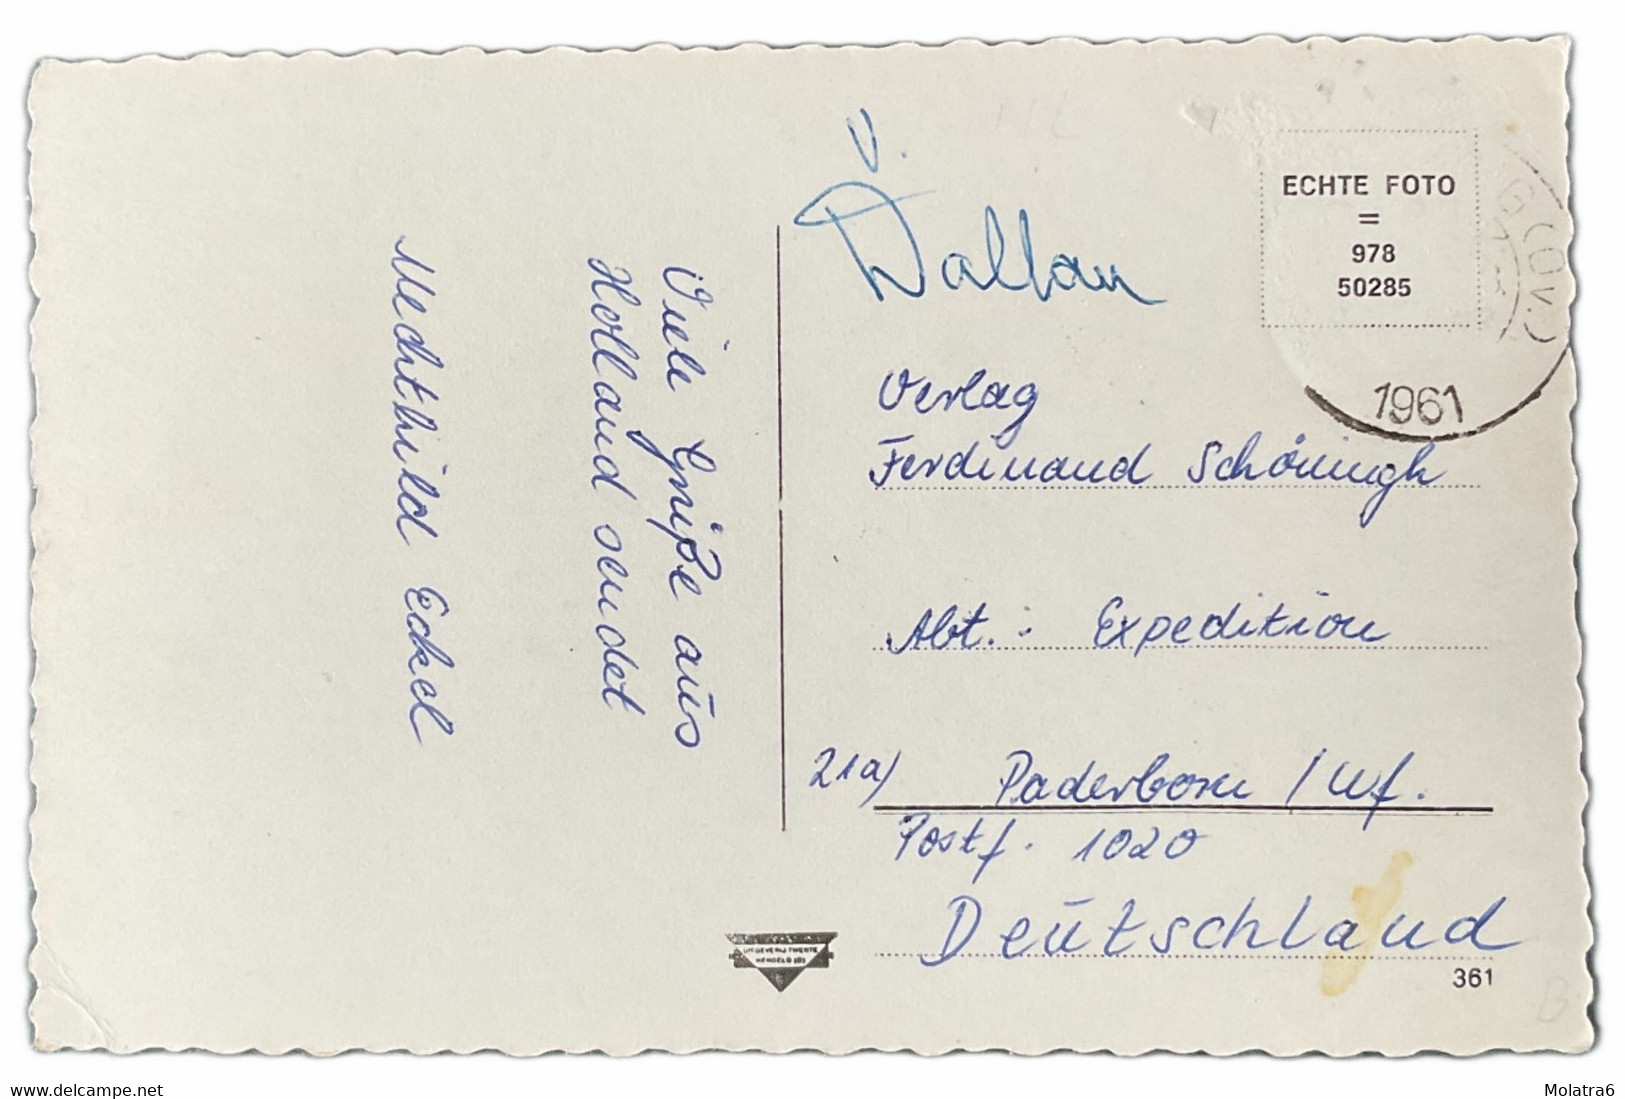 Viele Grüße aus
Holland sendet
Mechthild Eckel
V.
ECHTE FOTO
=
978
50285
1961
Verlag
Ferdinand Schöningh
Abt.: Expedition
21a) Paderborn / Wf.
Postf. 1020
Deutschland
UITGEVERIJ TWENTE
HENGELO (O)
361
www.delcampe.net
Molatra6